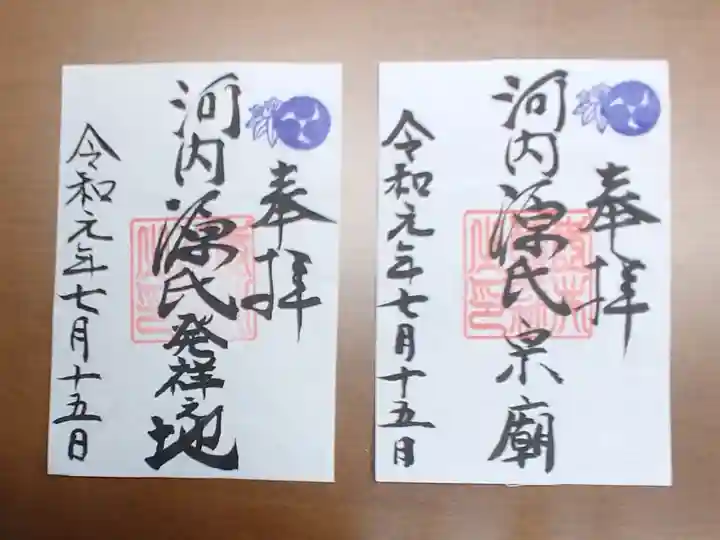 奉拝
河内源氏発祥之地
令和元年七月十五日
奉拝
河内源氏宗廟
令和元年七月十五日